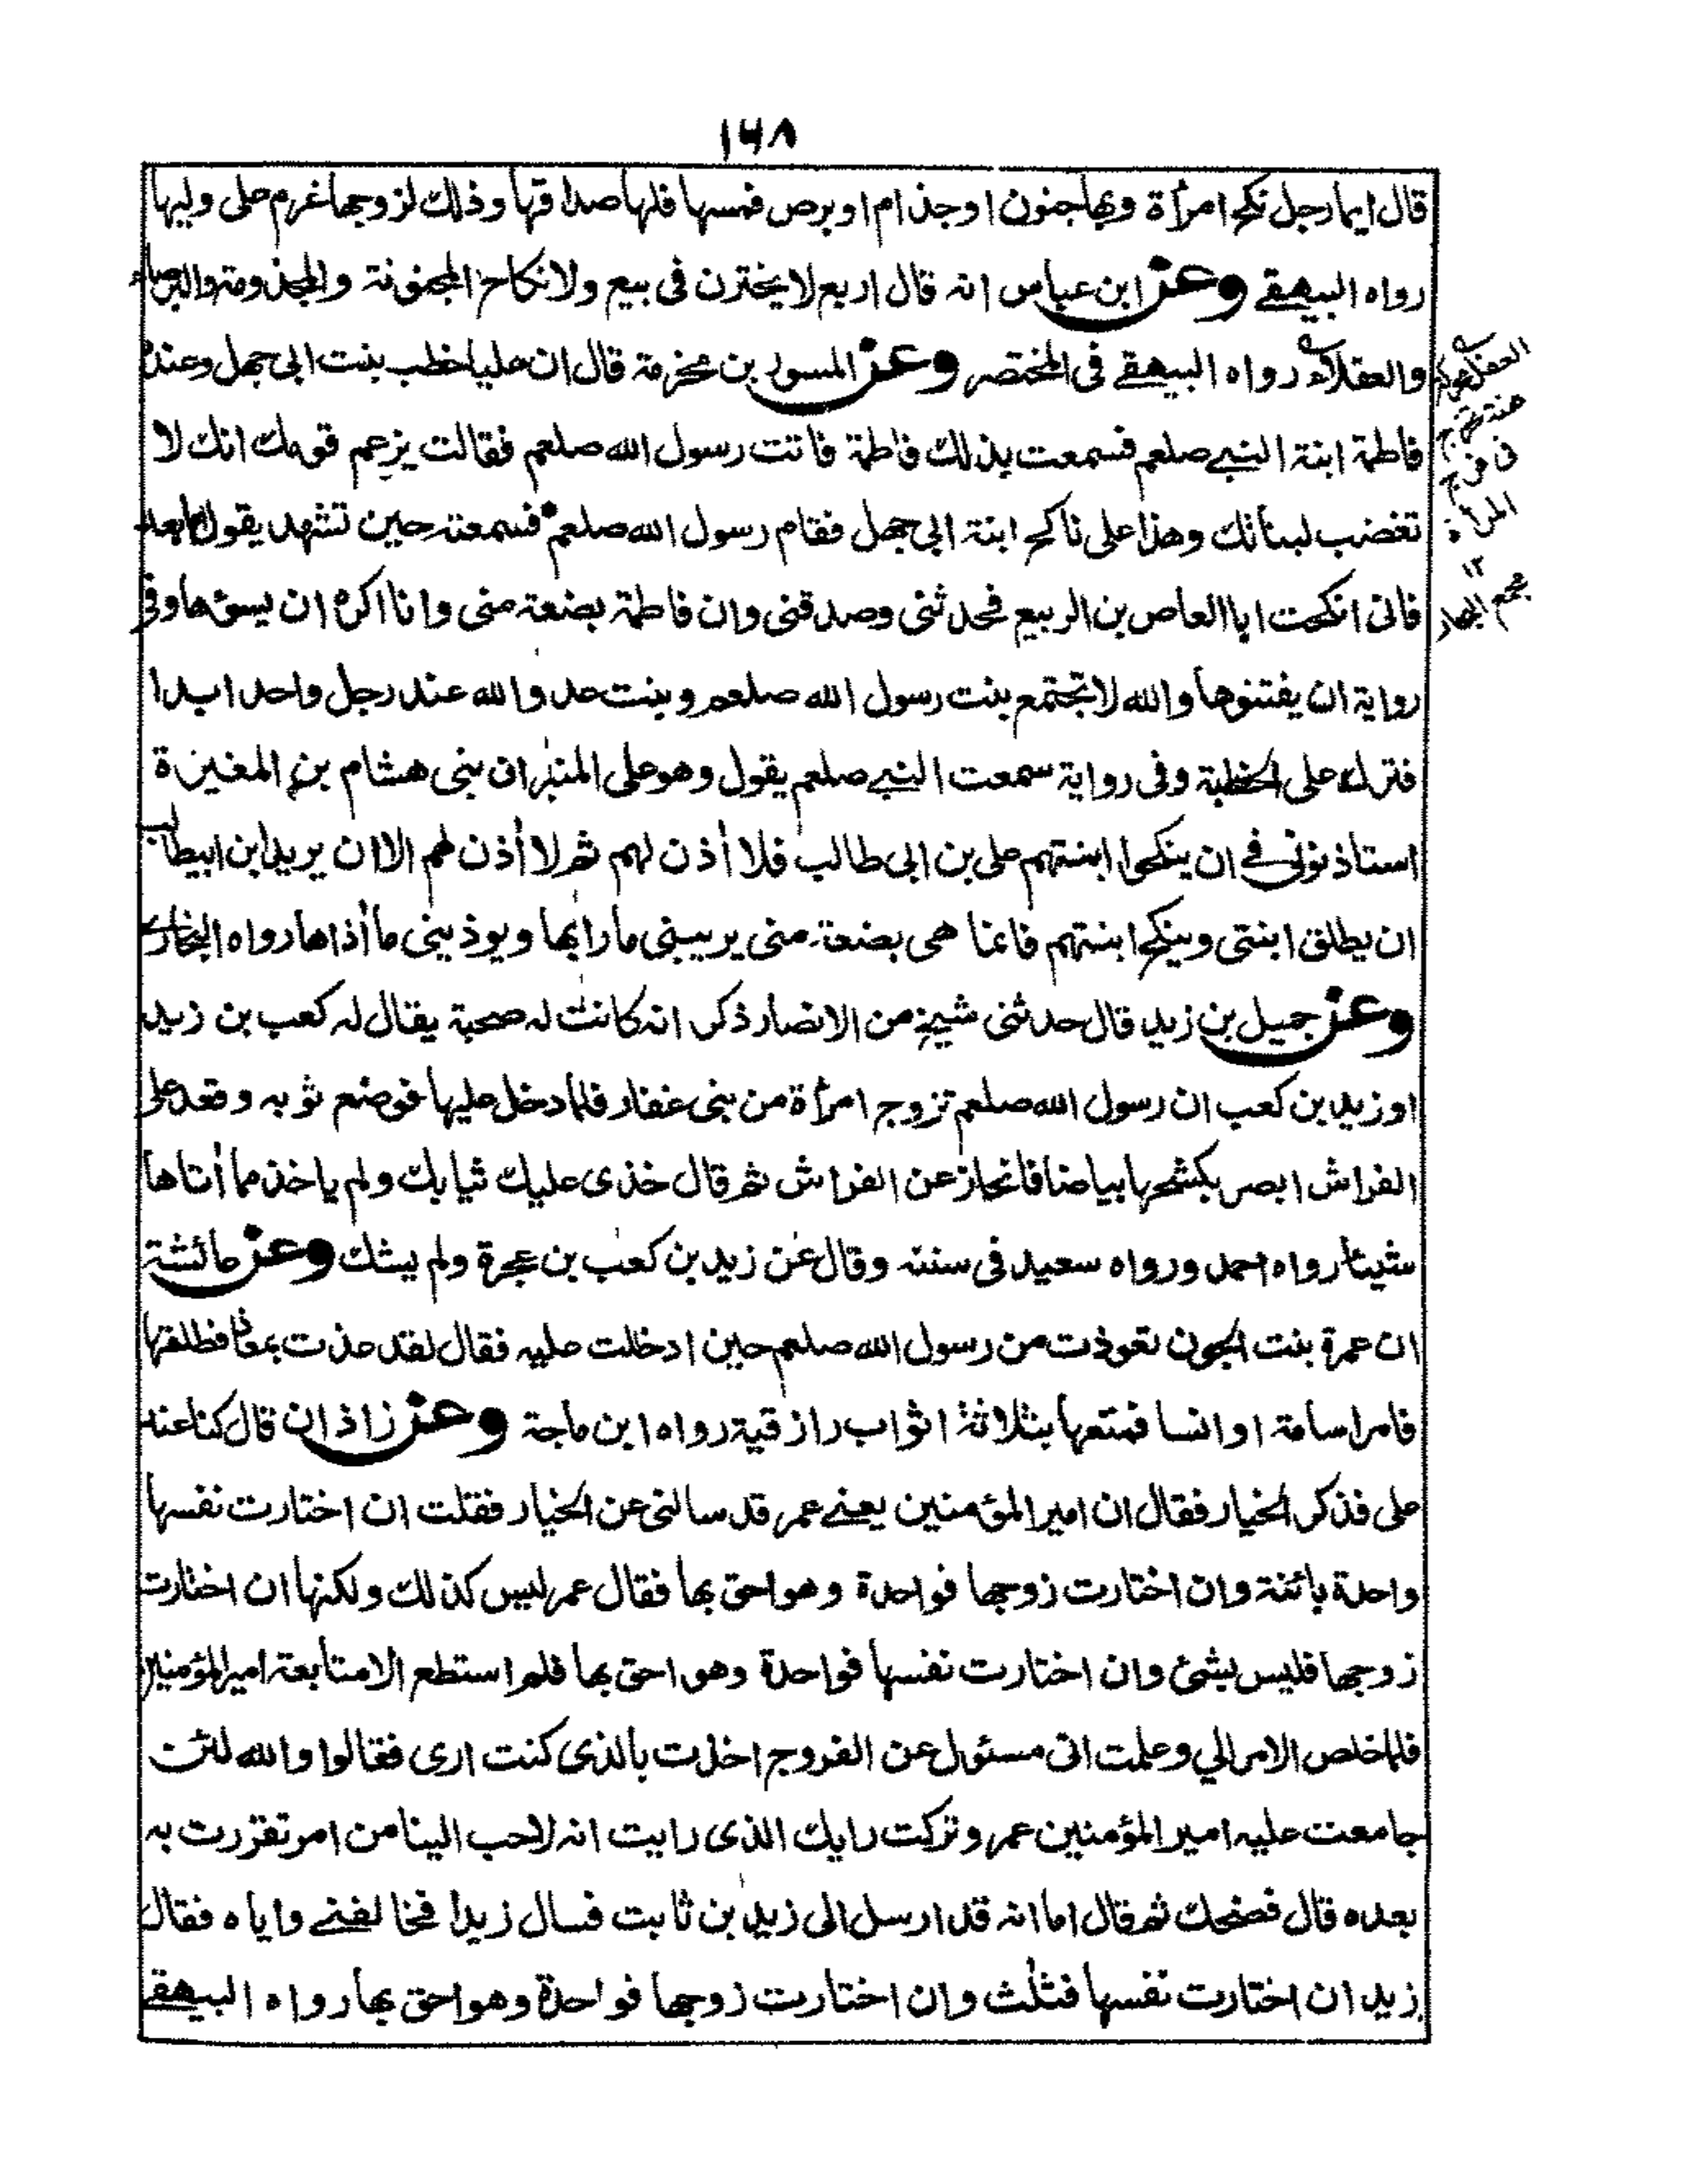 ١٦٨
قال ايما رجل نكح امرأة وبها جنون او جذام او برص فمسها فلها صداقها وذلك لزوجها غرم على وليها
رواه البيهقي وعن ابن عباس انه قال اربع لا يجزن في بيع ولا نكاح المجنونة والمجذومة والبرصاء
والعفلاء رواه البيهقي في المختصر وعن المسور بن مخرمة قال ان عليا خطب بنت ابي جهل وعنده
فاطمة ابنة النبي صلعم فسمعت بذلك فاطمة فاتت رسول الله صلعم فقالت يزعم قومك انك لا
تغضب لبناتك وهذا على ناكح ابنة ابي جهل فقام رسول الله صلعم فسمعته حين تشهد يقول اما بعد
فانى انكحت ابا العاص بن الربيع فحدثنى وصدقنى وان فاطمة بضعة منى وانا اكره ان يسوءها وفى
رواية ان يفتنوها والله لا تجتمع بنت رسول الله صلعم وبنت عدو الله عند رجل واحد ابدا
فترك على الخطبة وفى رواية سمعت النبي صلعم يقول وهو على المنبر ان بنى هشام بن المغيرة
استاذنونى في ان ينكحوا ابنتهم على بن ابى طالب فلا أذن لهم ثم لا أذن لهم الا ان يريد ابن ابيطالب
ان يطلق ابنتى وينكح ابنتهم فانما هى بضعة منى يريبنى ما رابها ويوذينى ما أذاها رواه البخارى
وعن جميل بن زيد قال حدثنى شيخ من الانصار ذكر انه كانت له صحبة يقال له كعب بن زيد
او زيد بن كعب ان رسول الله صلعم تزوج امرأة من بنى غفار فلما دخل عليها فوضع ثوبه وقعد على
الفراش ابصر بكشحها بياضا فانحاز عن الفراش ثم قال خذى عليك ثيابك ولم ياخذ مما أتاها
شيئا رواه احمد ورواه سعيد فى سننه وقال عن زيد بن كعب بن عجرة ولم يشك وعن عائشة
ان عمرة بنت الجون تعوذت من رسول الله صلعم حين ادخلت عليه فقال لقد عذت بمعاذ فطلقها
فامر اسامة او انسا فمتعها بثلاثة اثواب رازقية رواه ابن ماجة وعن زاذان قال كنا عند
على فذكر الخيار فقال ان امير المؤمنين يعنى عمر قد سالنى عن الخيار فقلت ان اختارت نفسها
واحدة بائنة وان اختارت زوجها فواحدة وهو احق بها فقال عمر ليس كذلك ولكنها ان اختارت
زوجها فليس بشئ وان اختارت نفسها فواحدة وهو احق بها فلم استطع الا متابعة امير المؤمنين
فلما خلص الامر الي وعلمت انى مسئول عن الفروج اخذت بالذى كنت ارى فقالوا والله لئن
جامعت عليه امير المؤمنين عمر وتركت رايك الذى رايت انه لاحب الينا من امر تفردت به
بعده قال فضحك ثم قال اما انه قد ارسل الى زيد بن ثابت فسال زيدا فخالفنى واياه فقال
زيد ان اختارت نفسها فثلث وان اختارت زوجها فواحدة وهو احق بها رواه البيهقى
العفل هو
هنة تخرج
فى فرج
المرأة
١٢
مجمع البحار